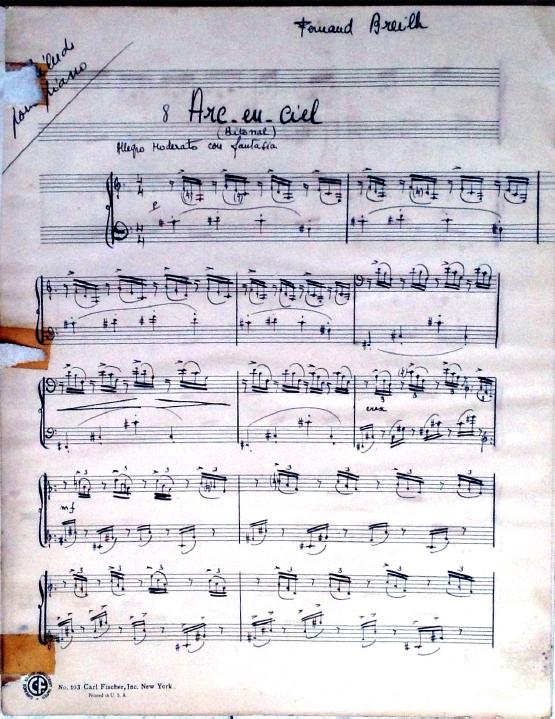 Fernand Breilh
pour piano
8 Arc-en-ciel
(Bitonal)
Allegro Moderato con fantasia
p
cresc
mf
No. 103 Carl Fischer, Inc. New York
Printed in U. S. A.
CF